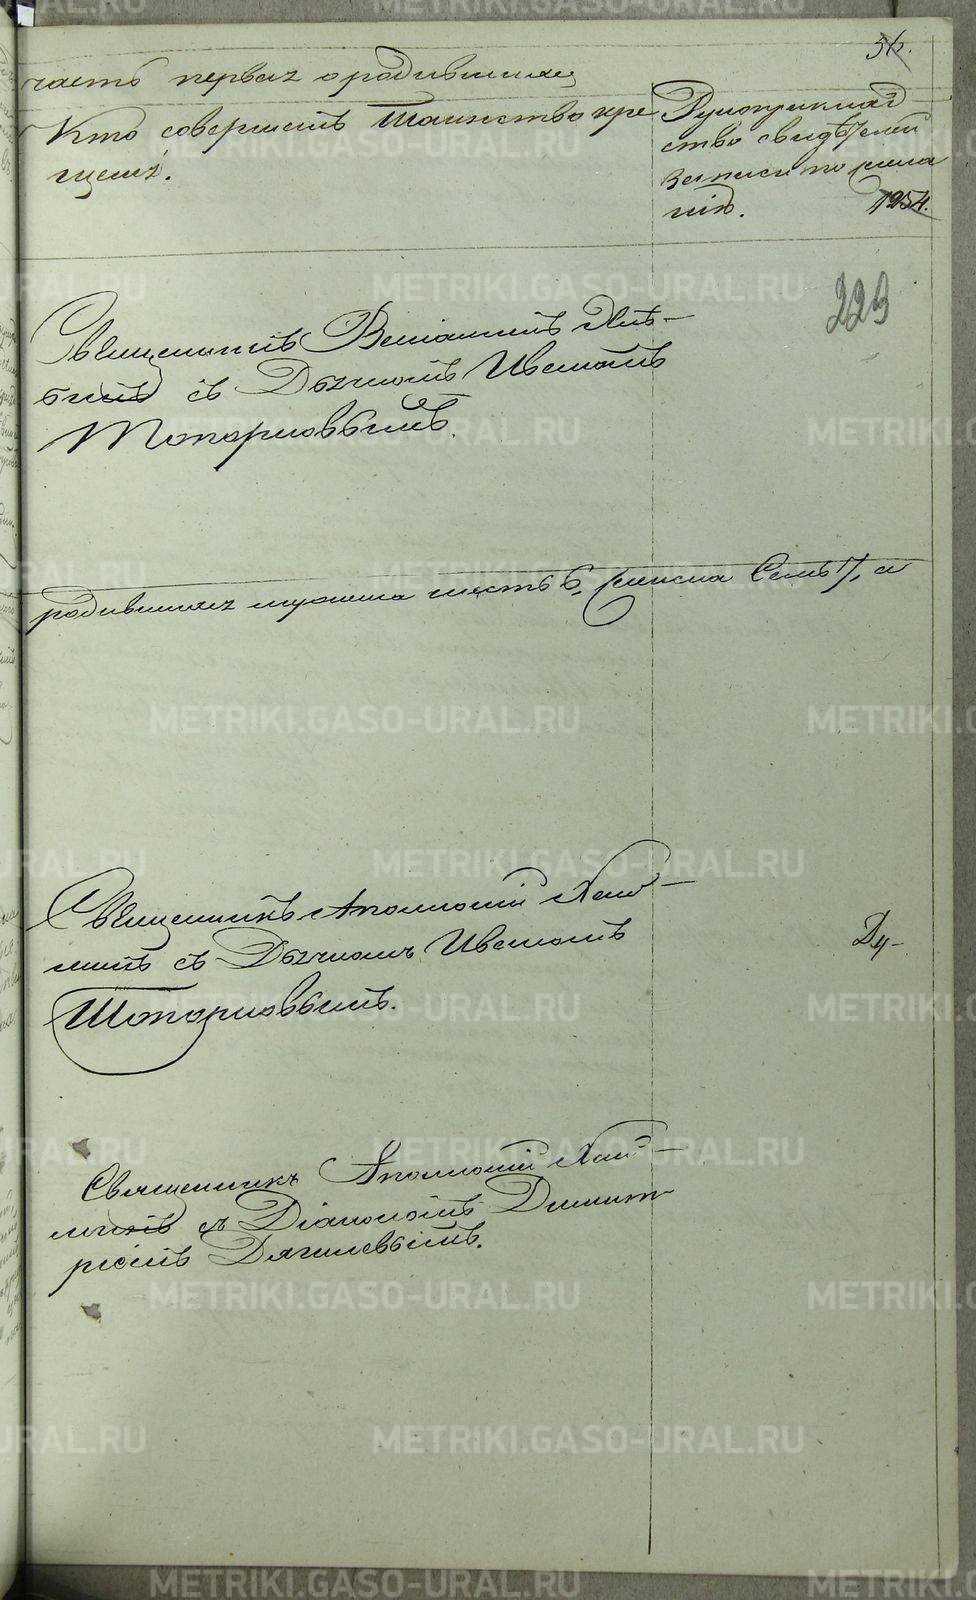 56.
часть первая о родившихся
Кто совершилъ таинство кре
щенія.
Рукоприклад
ство свидѣтелей
записи по жела
нію.
1254.
223
Священникъ Веніаминъ
съ Дьячкомъ Иваномъ
Топорковымъ.
родившихся мужеска шесть 6, женска семь 7, а
Священникъ Аполлоній
съ Дьячкомъ Иваномъ
Топорковымъ.
Ду-
Священникъ Аполлоній
съ Діакономъ Димит-
ріемъ Дягилевымъ.
METRIKI.GASO-URAL.RU